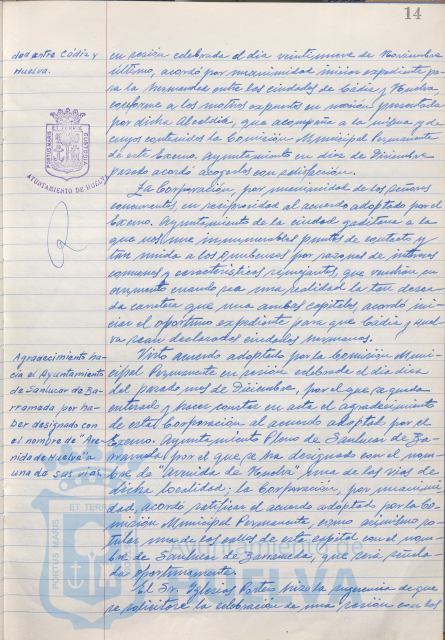 14
dad entre Cádiz y
Huelva.
en sesión celebrada el día veintinueve de Noviembre
último, acordó por unanimidad iniciar expediente pa
ra la hermandad entre las ciudades de Cádiz y Huelva,
conforme a los motivos expuestos en moción presentada
por dicha Alcaldía, que acompaña a la misma y de
cuyos contenidos la Comisión Municipal Permanente
de este Excmo. Ayuntamiento en diez de Diciembre
pasado acordó acogerlos con satisfacción.
PORTUS MARIS ET TERRAE CUSTODIA
AYUNTAMIENTO DE HUELVA
La Corporación, por unanimidad de los señores
concurrentes, en reciprocidad al acuerdo adoptado por el
Excmo. Ayuntamiento de la ciudad gaditana a la
que nos une innumerables puntos de contacto y
tan unida a los onubenses por razones de intereses
comunes y características semejantes, que vendrían en
aumento cuando sea una realidad la tan desea
da carretera que una ambas capitales, acordó ini
ciar el oportuno expediente para que Cádiz y Huel
va sean declaradas ciudades hermanas.
Agradecimiento ha-
cia el Ayuntamiento
de Sanlucar de Ba-
rrameda por ha-
ber designado con
el nombre de "Ave-
nida de Huelva" a
una de sus vías.
Visto acuerdo adoptado por la Comisión Muni
cipal Permanente en sesión celebrada el día diez
del pasado mes de Diciembre, por el que se queda
enterado y hacer constar en acta el agradecimiento
de esta Corporación al acuerdo adoptado por el
Excmo. Ayuntamiento Pleno de Sanlucar de Ba
rrameda por el que se ha designado con el nom
bre de "Avenida de Huelva" una de las vías de
dicha localidad; la Corporación, por unanimi
dad, acordó ratificar el acuerdo adoptado por la Co
misión Municipal Permanente, como asimismo ro
tular una de las calles de esta capital con el nom
bre de Sanlucar de Barrameda, que será señala
da oportunamente.
El Sr. Iglesias Cortés hizo la sugerencia de que
se solicitara la celebración de una sesión con los
PORTUS MARIS ET TERR
HUELVA